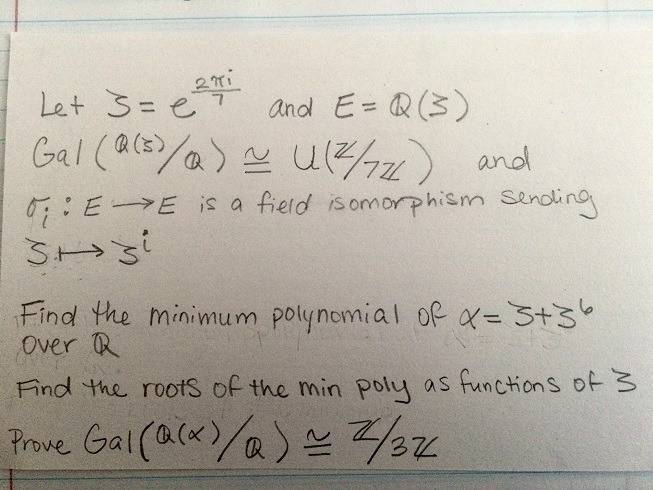 Let ζ = e^{2πi/7} and E = ℚ(ζ)
Gal(ℚ(ζ)/ℚ) ≅ U(ℤ/7ℤ) and
σ_i : E → E is a field isomorphism sending
ζ ↦ ζ^i
Find the minimum polynomial of α = ζ+ζ^6
over ℚ
Find the roots of the min poly as functions of ζ
Prove Gal(ℚ(α)/ℚ) ≅ ℤ/3ℤ